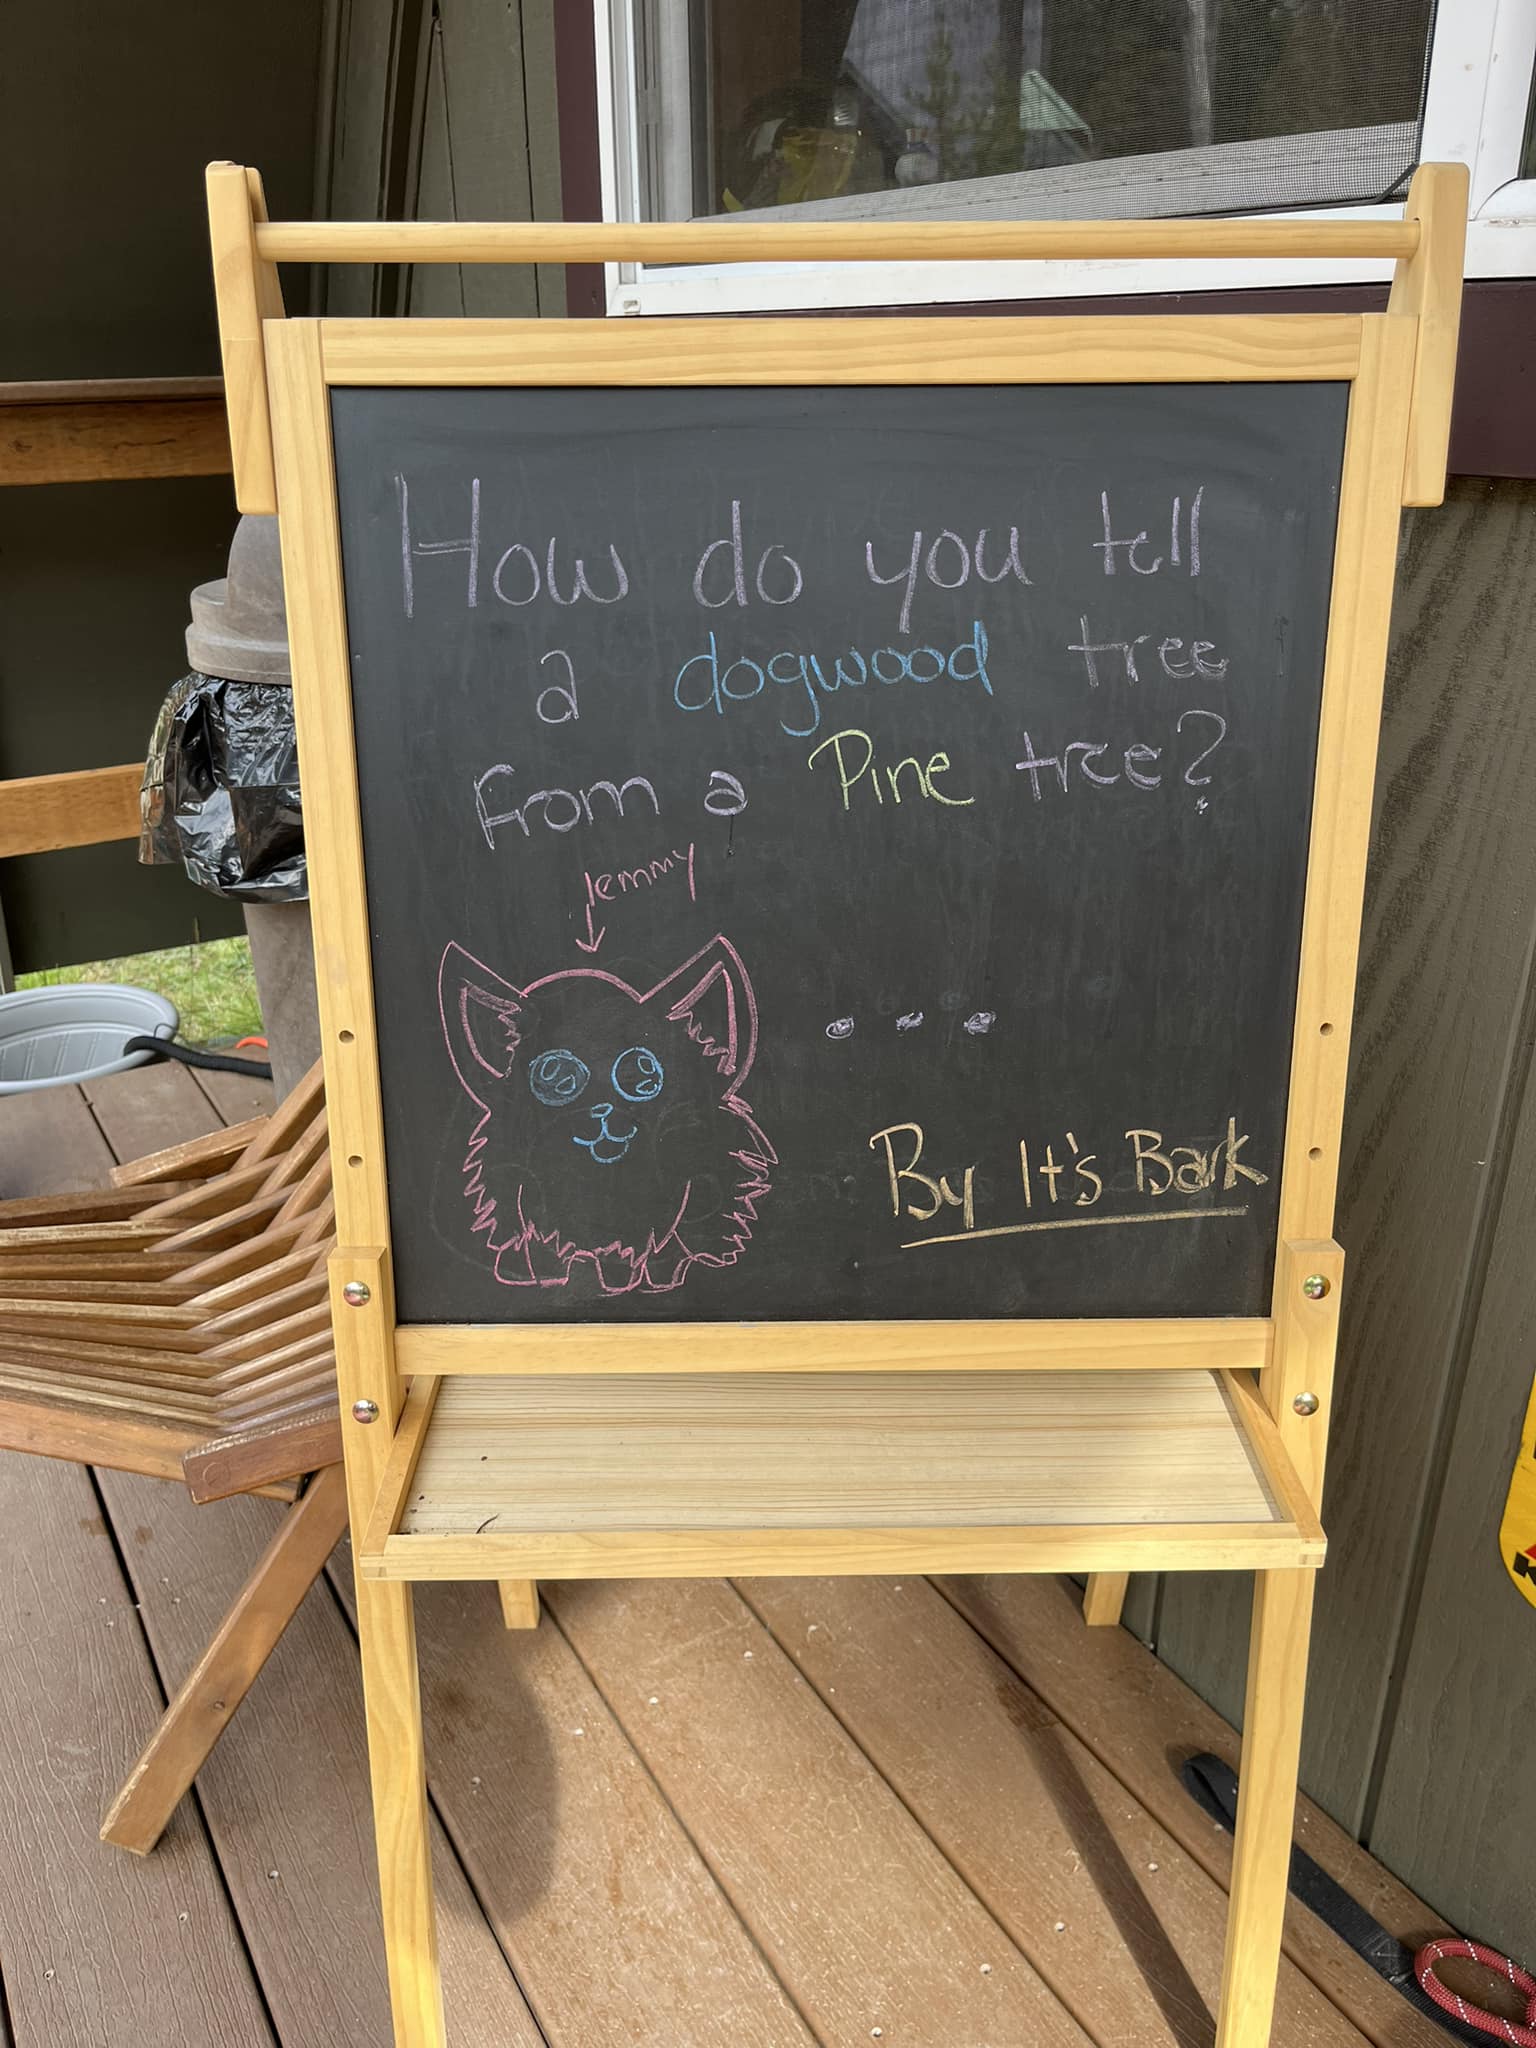 How do you tell
a dogwood tree
from a Pine tree?
lemmy
...
By It's Bark